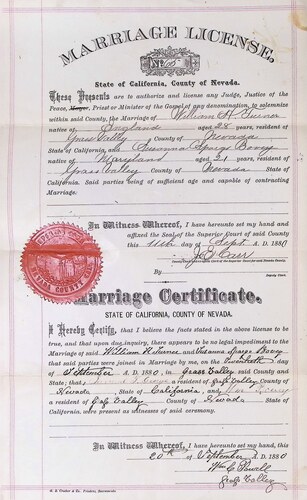 MARRIAGE LICENSE,
No.
State of California, County of Nevada.
These Presents are to authorize and license any Judge, Justice of the
Peace, Mayor, Priest or Minister of the Gospel of any denomination, to solemnize
within said County, the Marriage of William H.
native of England aged 28 years, resident of
Grass Valley County of Nevada
State of California, and Susanna George
native of Maryland aged 21 years, resident of
Grass Valley County of Nevada State of
California. Said parties being of sufficient age and capable of contracting
Marriage.
In Witness Whereof, I have hereunto set my hand and
affixed the Seal of the Superior Court of said County
this 11th day of Sept A. D. 1880
Carr
By
Deputy Clerk.
Marriage Certificate.
STATE OF CALIFORNIA, COUNTY OF NEVADA.
I Hereby Certify, that I believe the facts stated in the above license to be
true, and that upon due inquiry, there appears to be no legal impediment to the
Marriage of said William H. and Susanna George
that said parties were joined in Marriage by me, on the Twentieth day of
September A. D. 1880, in Grass Valley said County and
State; that a resident of Grass Valley County of
Nevada, State of California, and
a resident of Grass Valley County of Nevada State of
California, were present as witnesses of said ceremony.
In Witness Whereof, I have hereunto set my hand, this
20th day of September A. D. 1880
Wm C. Powell
Grass Valley